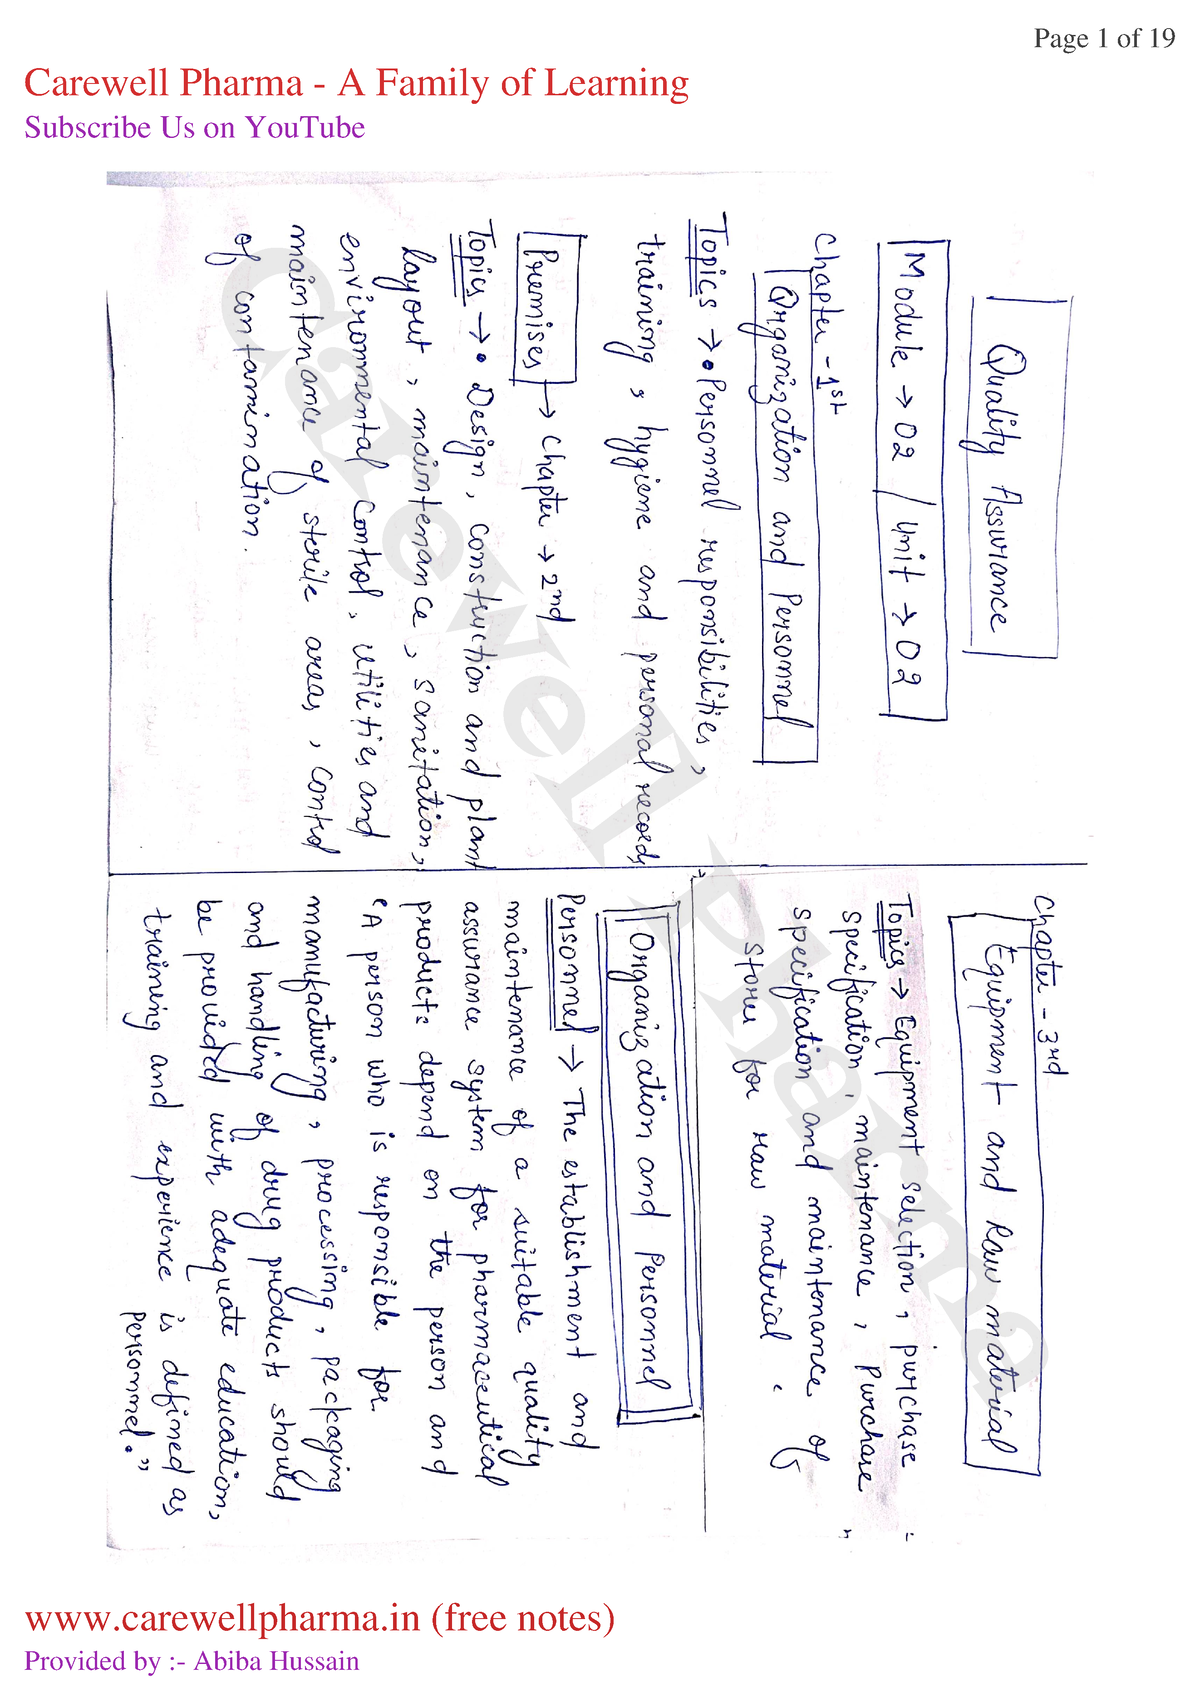 Page 1 of 19
Carewell Pharma - A Family of Learning
Subscribe Us on YouTube
Quality Assurance
Module → 02 / Unit → 02
Chapter - 1st
Organization and Personnel
Topics → • Personnel responsibilities,
training, hygiene and personal records
Premises → Chapter → 2nd
Topics → • Design, construction and plant
layout, maintenance, sanitation,
environmental control, utilities and
maintenance of sterile areas, control
of contamination.
Chapter - 3rd
Equipment and Raw material
Topics → Equipment selection, purchase
specification, maintenance, purchase
specification and maintenance of
store for raw material.
Organization and Personnel
Personnel → The establishment and
maintenance of a suitable quality
assurance system for pharmaceutical
products depend on the person and
"A person who is responsible for
manufacturing, processing, packaging
and handling of drug products should
be provided with adequate education,
training and experience is defined as
personnel."
Carewell Pharma
www.carewellpharma.in (free notes)
Provided by :- Abiba Hussain